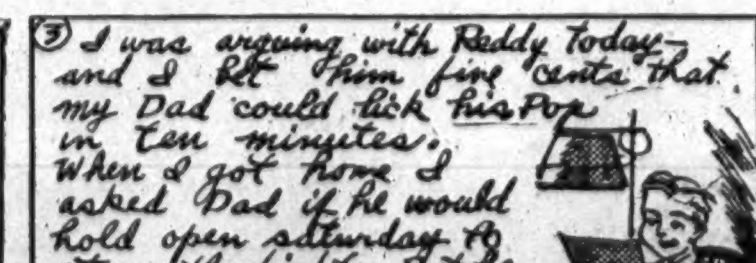 ③ I was arguing with Reddy today—
and I bet him five cents that
my Dad could lick his Pop
in ten minutes.
When I got home I
asked Dad if he would
hold open saturday to